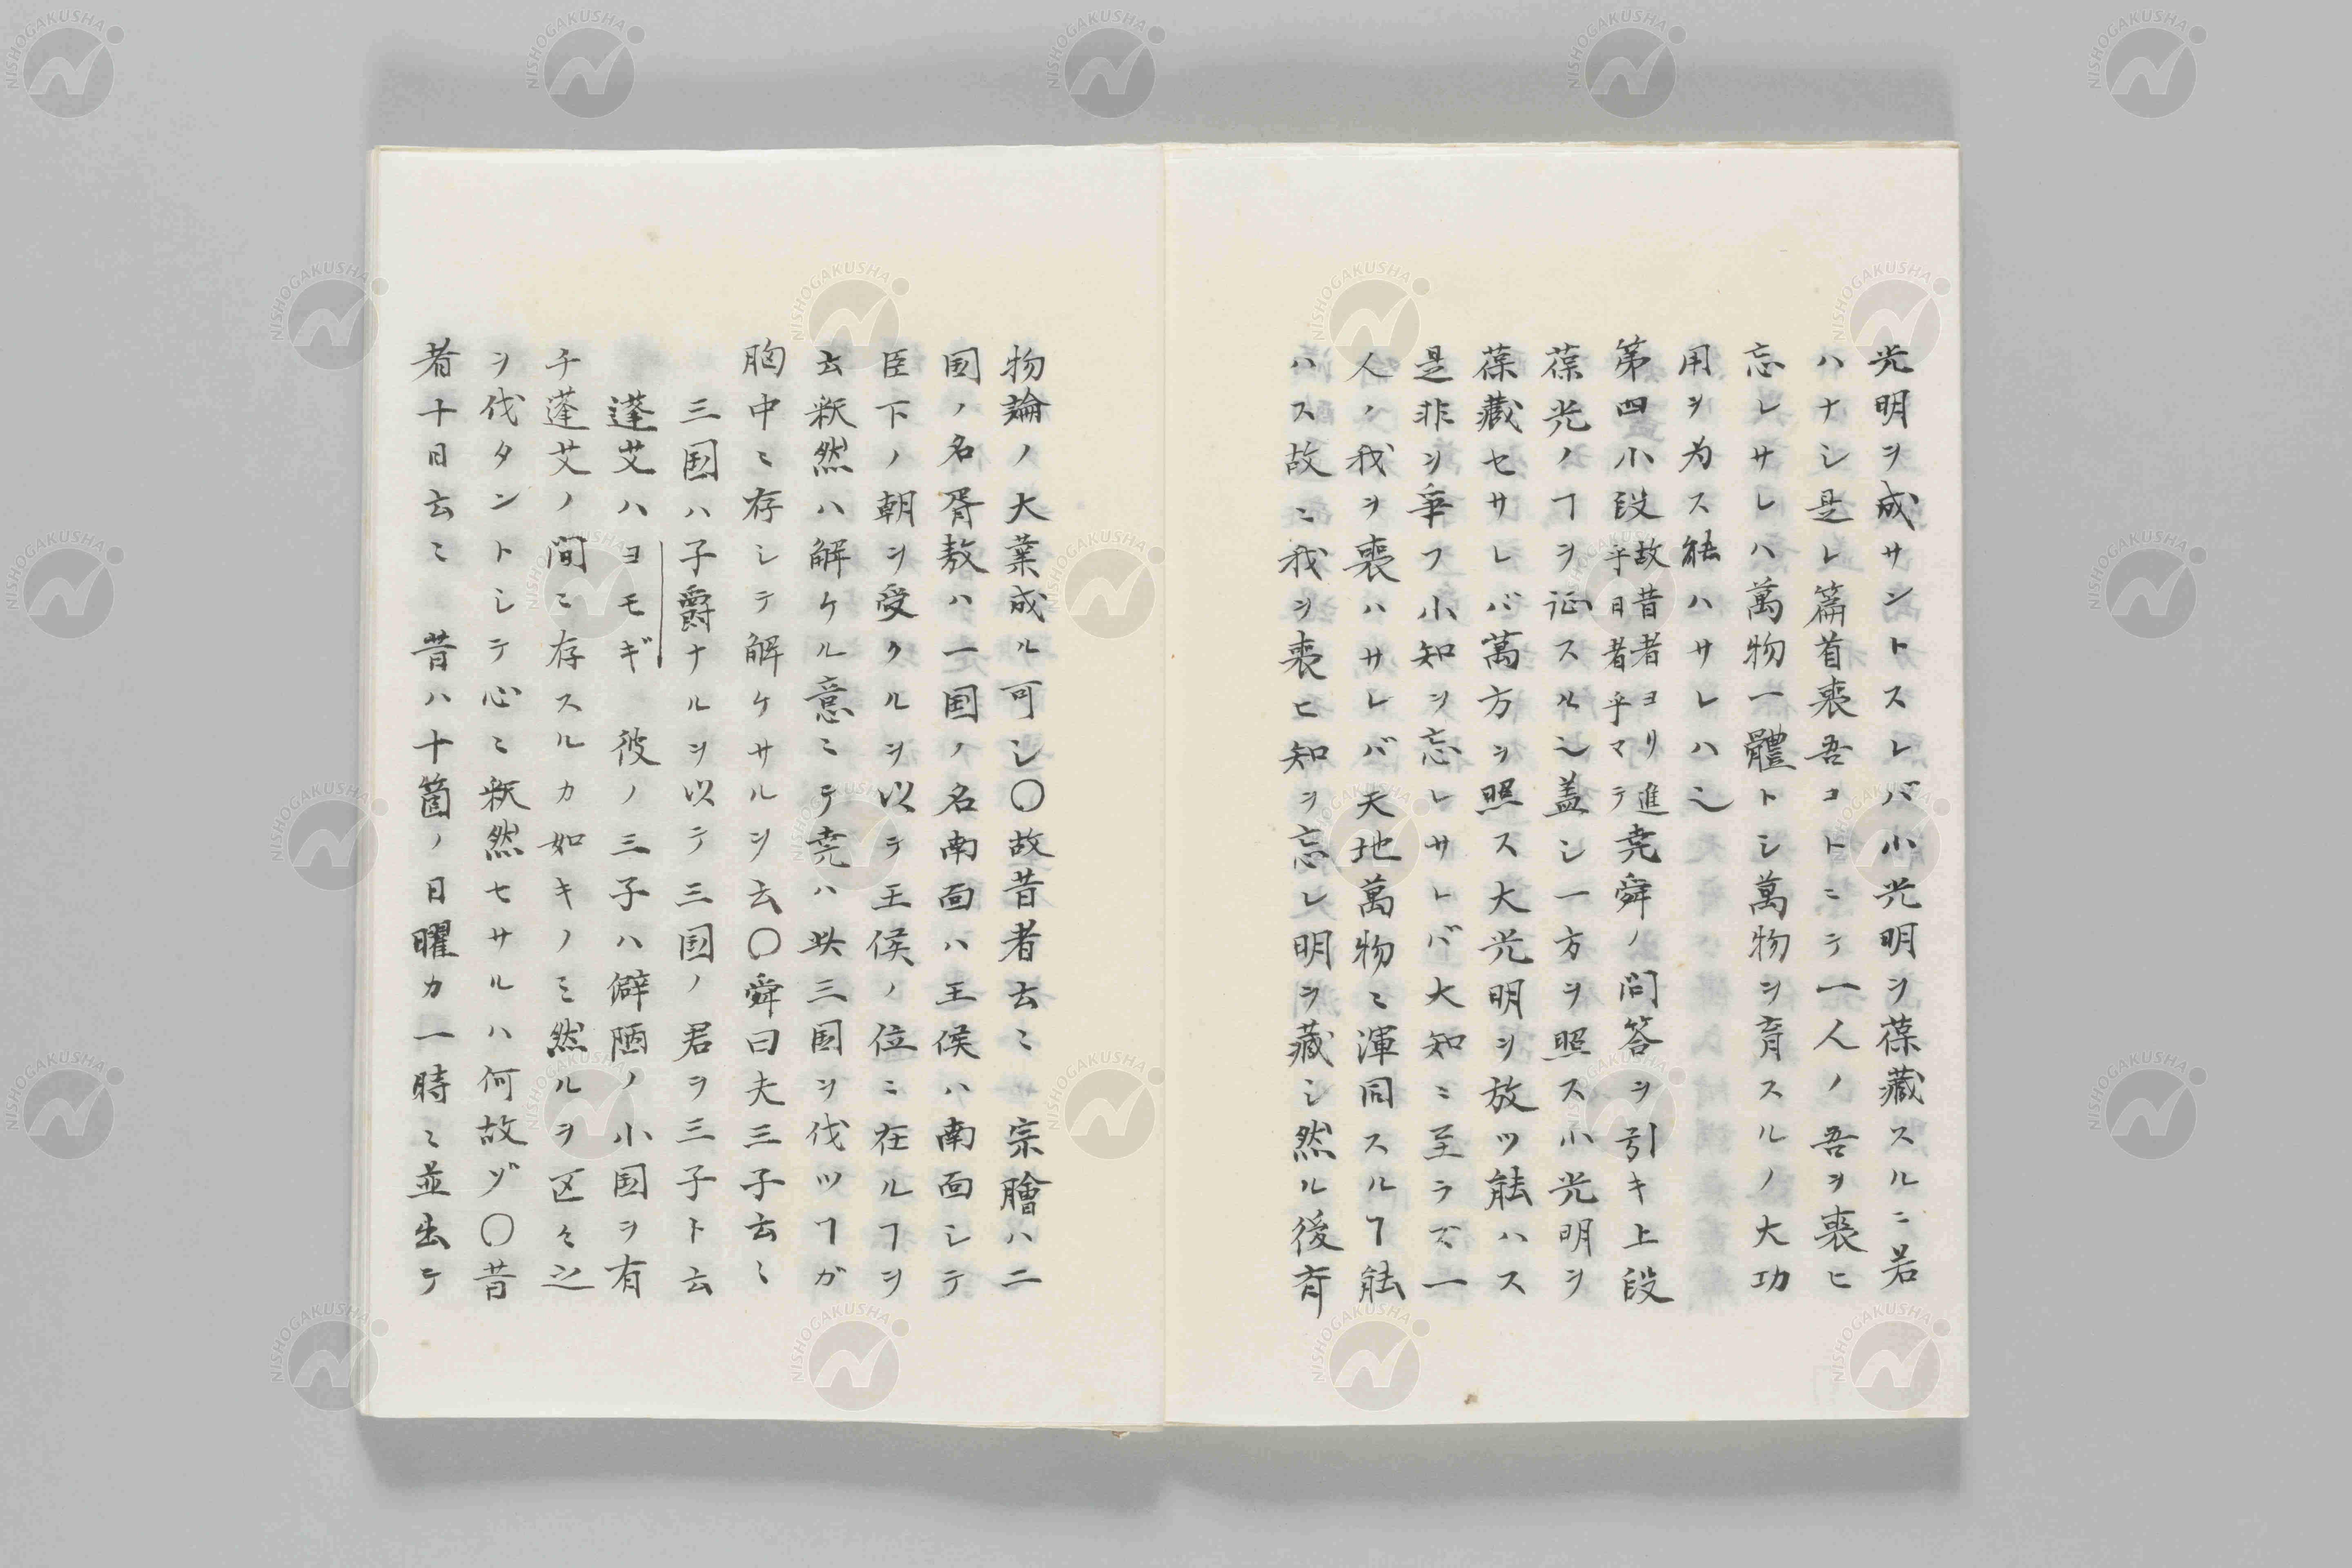 光明ヲ成サントスレバ小光明ヲ葆藏スルニ若
ハナシ是レ篇首喪吾コトニテ一人ノ吾ヲ喪ヒ
忘レサレハ萬物一體トシ萬物ヲ育スルノ大功
用ヲ为ス能ハサレハ之
第四小段故昔者ヨリ進乎日者乎マテ尭舜ノ問答ヲ引キ上段
葆光ノヿヲ証スル之蓋シ一方ヲ照ス小光明ヲ
葆藏セサレバ萬方ヲ照ス大光明ヲ放ツ能ハス
是非ヲ争フ小知ヲ忘レサレバ大知ニ至ラズ一
人ノ我ヲ喪ハサレバ天地萬物ニ渾同スルヿ能
ハス故ニ我ヲ喪ヒ知ヲ忘レ明ヲ藏シ然ル後育
物論ノ大業成ル可シ〇故昔者云ミ 宗膾ハ二
国ノ名胥敖ハ一国ノ名南面ハ王侯ハ南面シテ
臣下ノ朝ヲ受クルヲ以テ王侯ノ位ニ在ルヿヲ
云釈然ハ解ケル意ニテ尭ハ此三国ヲ伐ツヿガ
胸中ニ存シテ解ケサルヲ云〇舜曰夫三子云ミ
三国ハ子爵ナルヲ以テ三国ノ君ヲ三子ト云
蓬艾ハヨモギ 彼ノ三子ハ僻陋ノ小国ヲ有
チ蓬艾ノ間ニ存スルカ如キノミ然ルヲ区々之
ヲ伐タントシテ心ニ釈然セサルハ何故ゾ〇昔
者十日云ミ 昔ハ十箇ノ日曜カ一時ニ並出テ
NISHOGAKUSHA